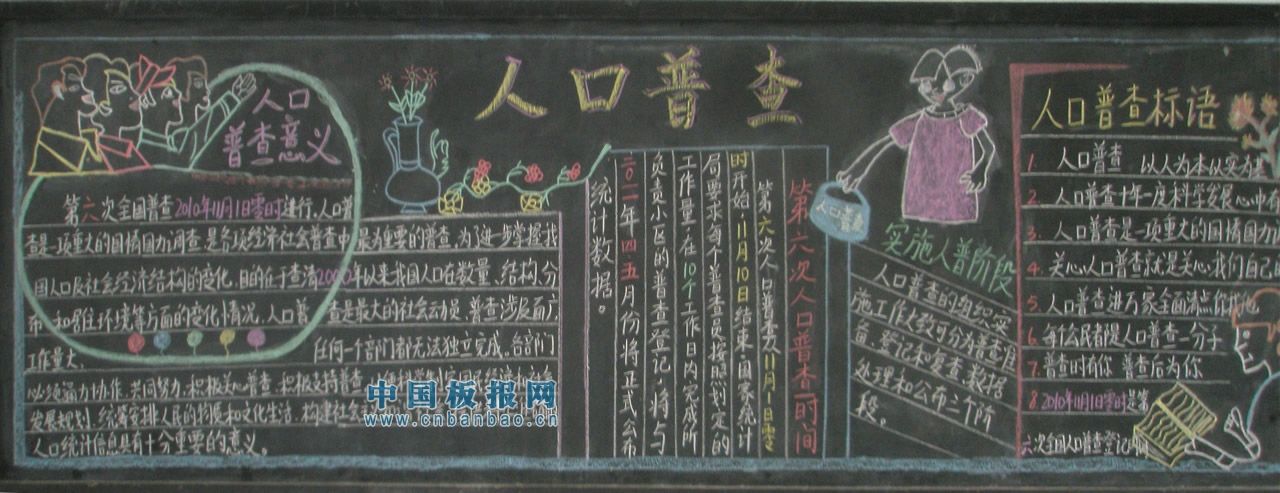 人口普查
人口
普查意义
第六次全国普查2010年11月1日零时进行。人口普
查是一项重大的国情国力调查,是各项经济社会普查中最为重要的普查,为进一步掌握我
国人口及社会经济结构的变化,目的在于查清2000年以来我国人口在数量、结构、分
布和居住环境等方面的变化情况。人口普查是最大的社会动员,普查涉及面广,
工作量大, 任何一个部门都无法独立完成。各部门
必须通力协作,共同努力,积极关心普查,积极支持普查,
发展规划,统筹安排人民的物质和文化生活,构建社会
人口统计信息具有十分重要的意义。
第六次人口普查时间
第六次人口普查从11月1日零
时开始,11月10日结束,国家统计
局要求每个普查员按照划定的
工作量,在10个工作日内完成所
负责小区的普查登记,将与
二〇一一年四、五月份将正式公布
统计数据。
人口普查
实施人普阶段
人口普查的组织实
施工作大致可分为普查准
备、登记和复查、数据
处理和公布三个阶
段。
人口普查标语
1. 人口普查 以人为本以实为
2. 人口普查十年一度科学发展心中有
3. 人口普查是一项重大的国情国力
4. 关心人口普查就是关心我们自己的
5. 人口普查进万家全面清点你我他
6. 每个公民都是人口普查一分子
7. 普查时有你 普查后为你
8. 2010年11月1日零时是第
六次全国人口普查登记时间
中国板报网
www.cnbanbao.cn